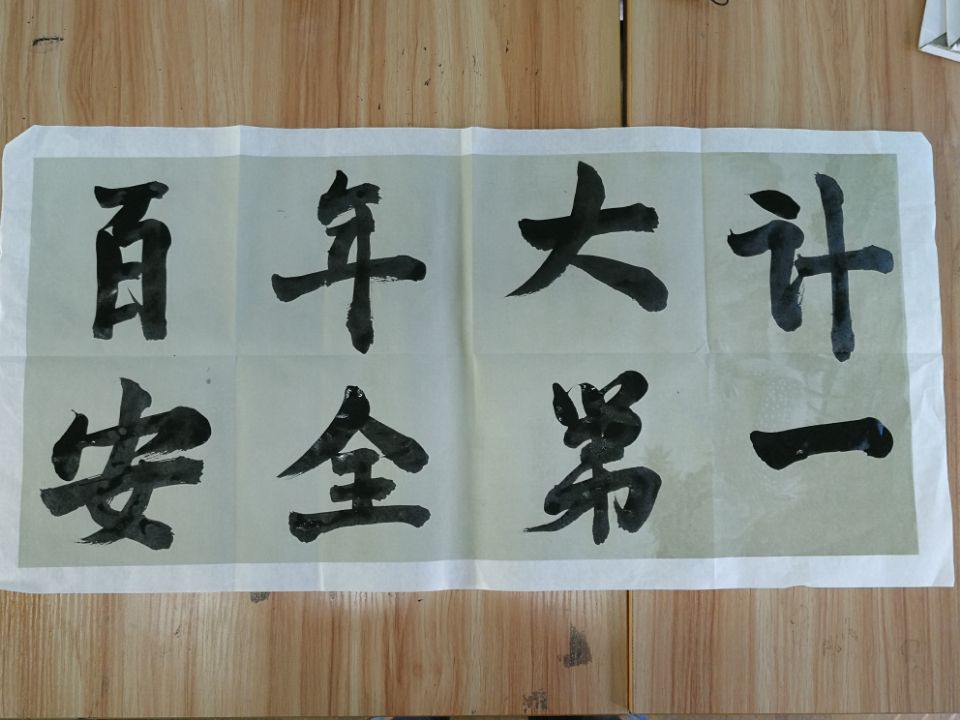 百年大计
安全第一